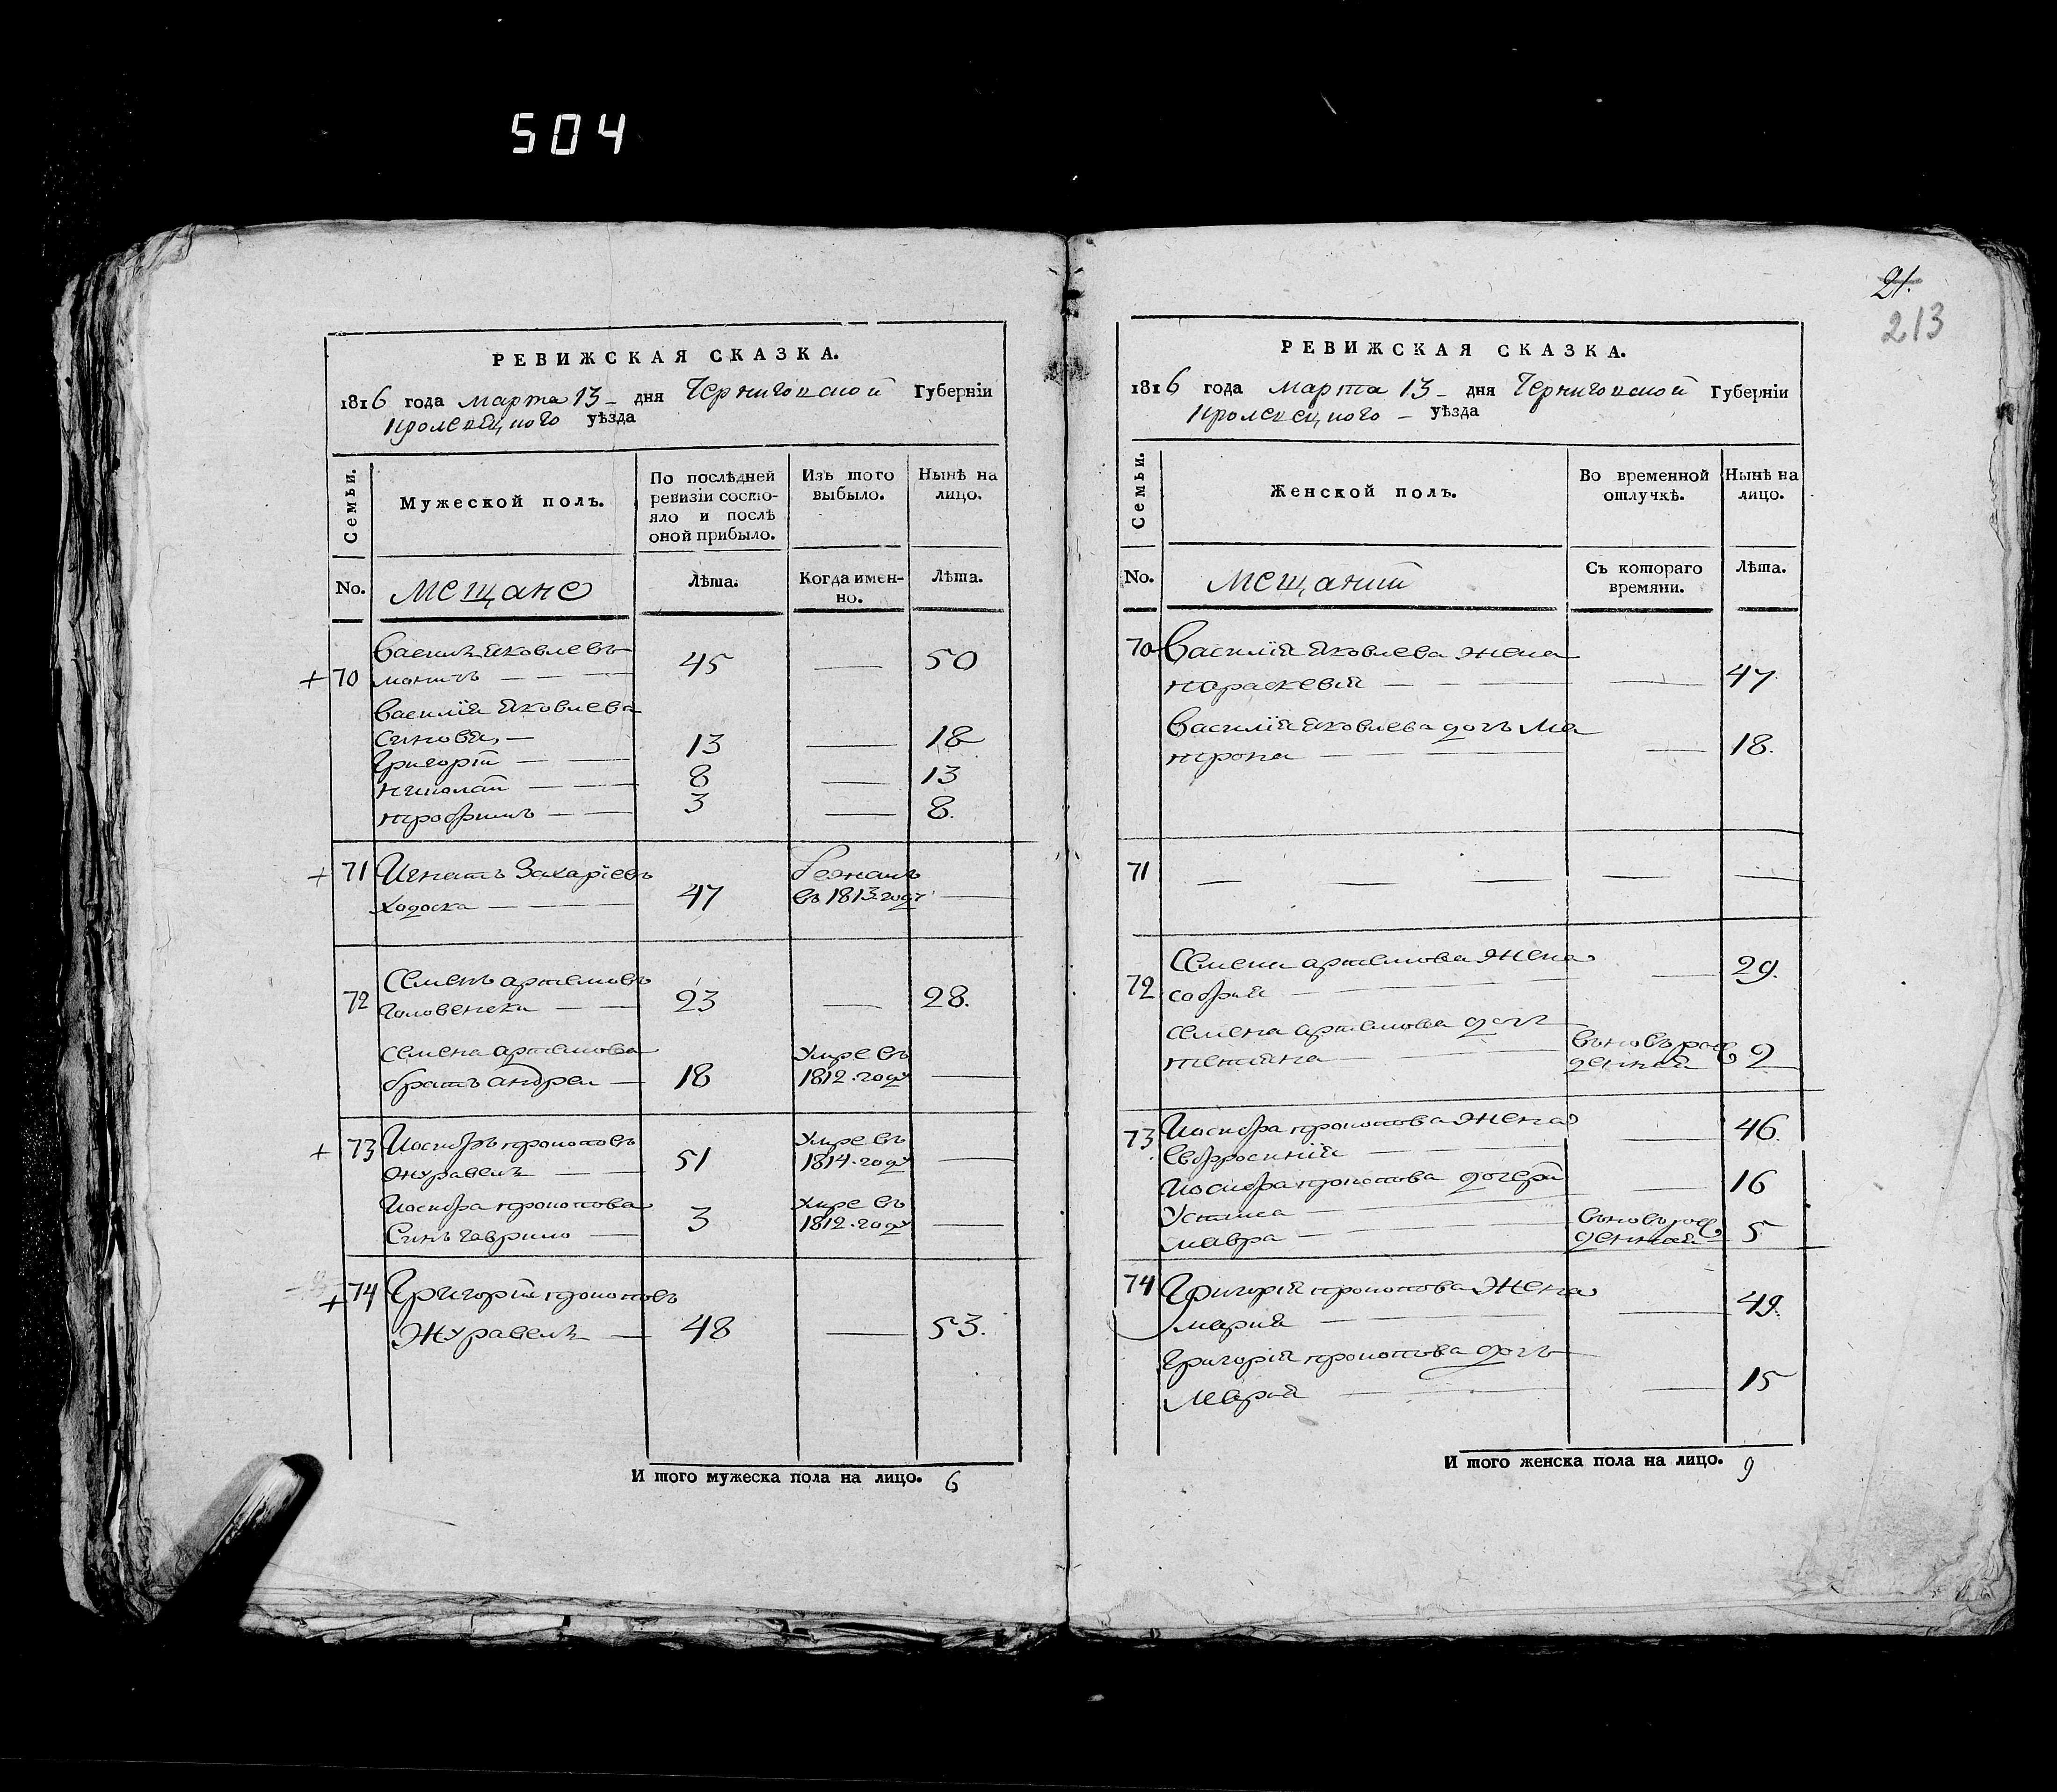 504
РЕВИЖСКАЯ СКАЗКА.
1816 года марта 13 - дня Черниговской Губерніи
Кролевецкого уѣзда
Семьи.
Мужеской полъ.
По послѣдней
ревизіи состо-
яло и послѣ
оной прибыло.
Изъ того
выбыло.
Нынѣ на
лицо.
No.
Мещане
Лѣта.
Когда имен-
но.
Лѣта.
Василь Яковлевъ
+ 70 45 — 50
Василія Яковлева
синовя, —
Григорій — — 13 — 18
Николай — — 8 — 13
Трофимъ — — 3 — 8.
+ 71 Игнатъ Захаріевъ бежалъ
Ходоска — — 47 въ 1813 году —
Семенъ Артемовъ
72 Головенски — — 23 — 28.
Семена Артемова Умре въ
братъ Андреи — 18 1812. году —
+ 73 Иосифъ Прокоповъ Умре въ
Журавель — — 51 1814. году —
Иосифа Прокопова Умре въ
Синъ Гаврило — 3 1812. году —
+ 74 Григорій Прокоповъ
Журавель — 48 — 53.
И того мужеска пола на лицо. 6
21.
213
РЕВИЖСКАЯ СКАЗКА.
1816 года марта 13 - дня Черниговской Губерніи
Кролевецкого - уѣзда
Семьи.
Женской полъ.
Во временной
отлучкѣ.
Нынѣ на
лицо.
No.
Мещанки
Съ котораго
времяни.
Лѣта.
70 Василія Яковлева жена
Параскевія — — — — 47
Василія Яковлева дочъ Ма
трона — — — 18.
71 — — — — —
Семена Артемова жена
72 Софія — — — 29.
Семена Артемова дочъ вновъ рож
Тетяна — — — денная 2
73 Иосифа Прокопова жена
Евфросинія — — — — 46.
Иосифа Прокопова дочери
Устина — — — — 16
Мавра — — — вновъ рож
денная 5
74 Григорія Прокопова жена
Марія — — — — 49.
Григорія Прокопова дочъ
Марія — — — 15
И того женска пола на лицо. 9